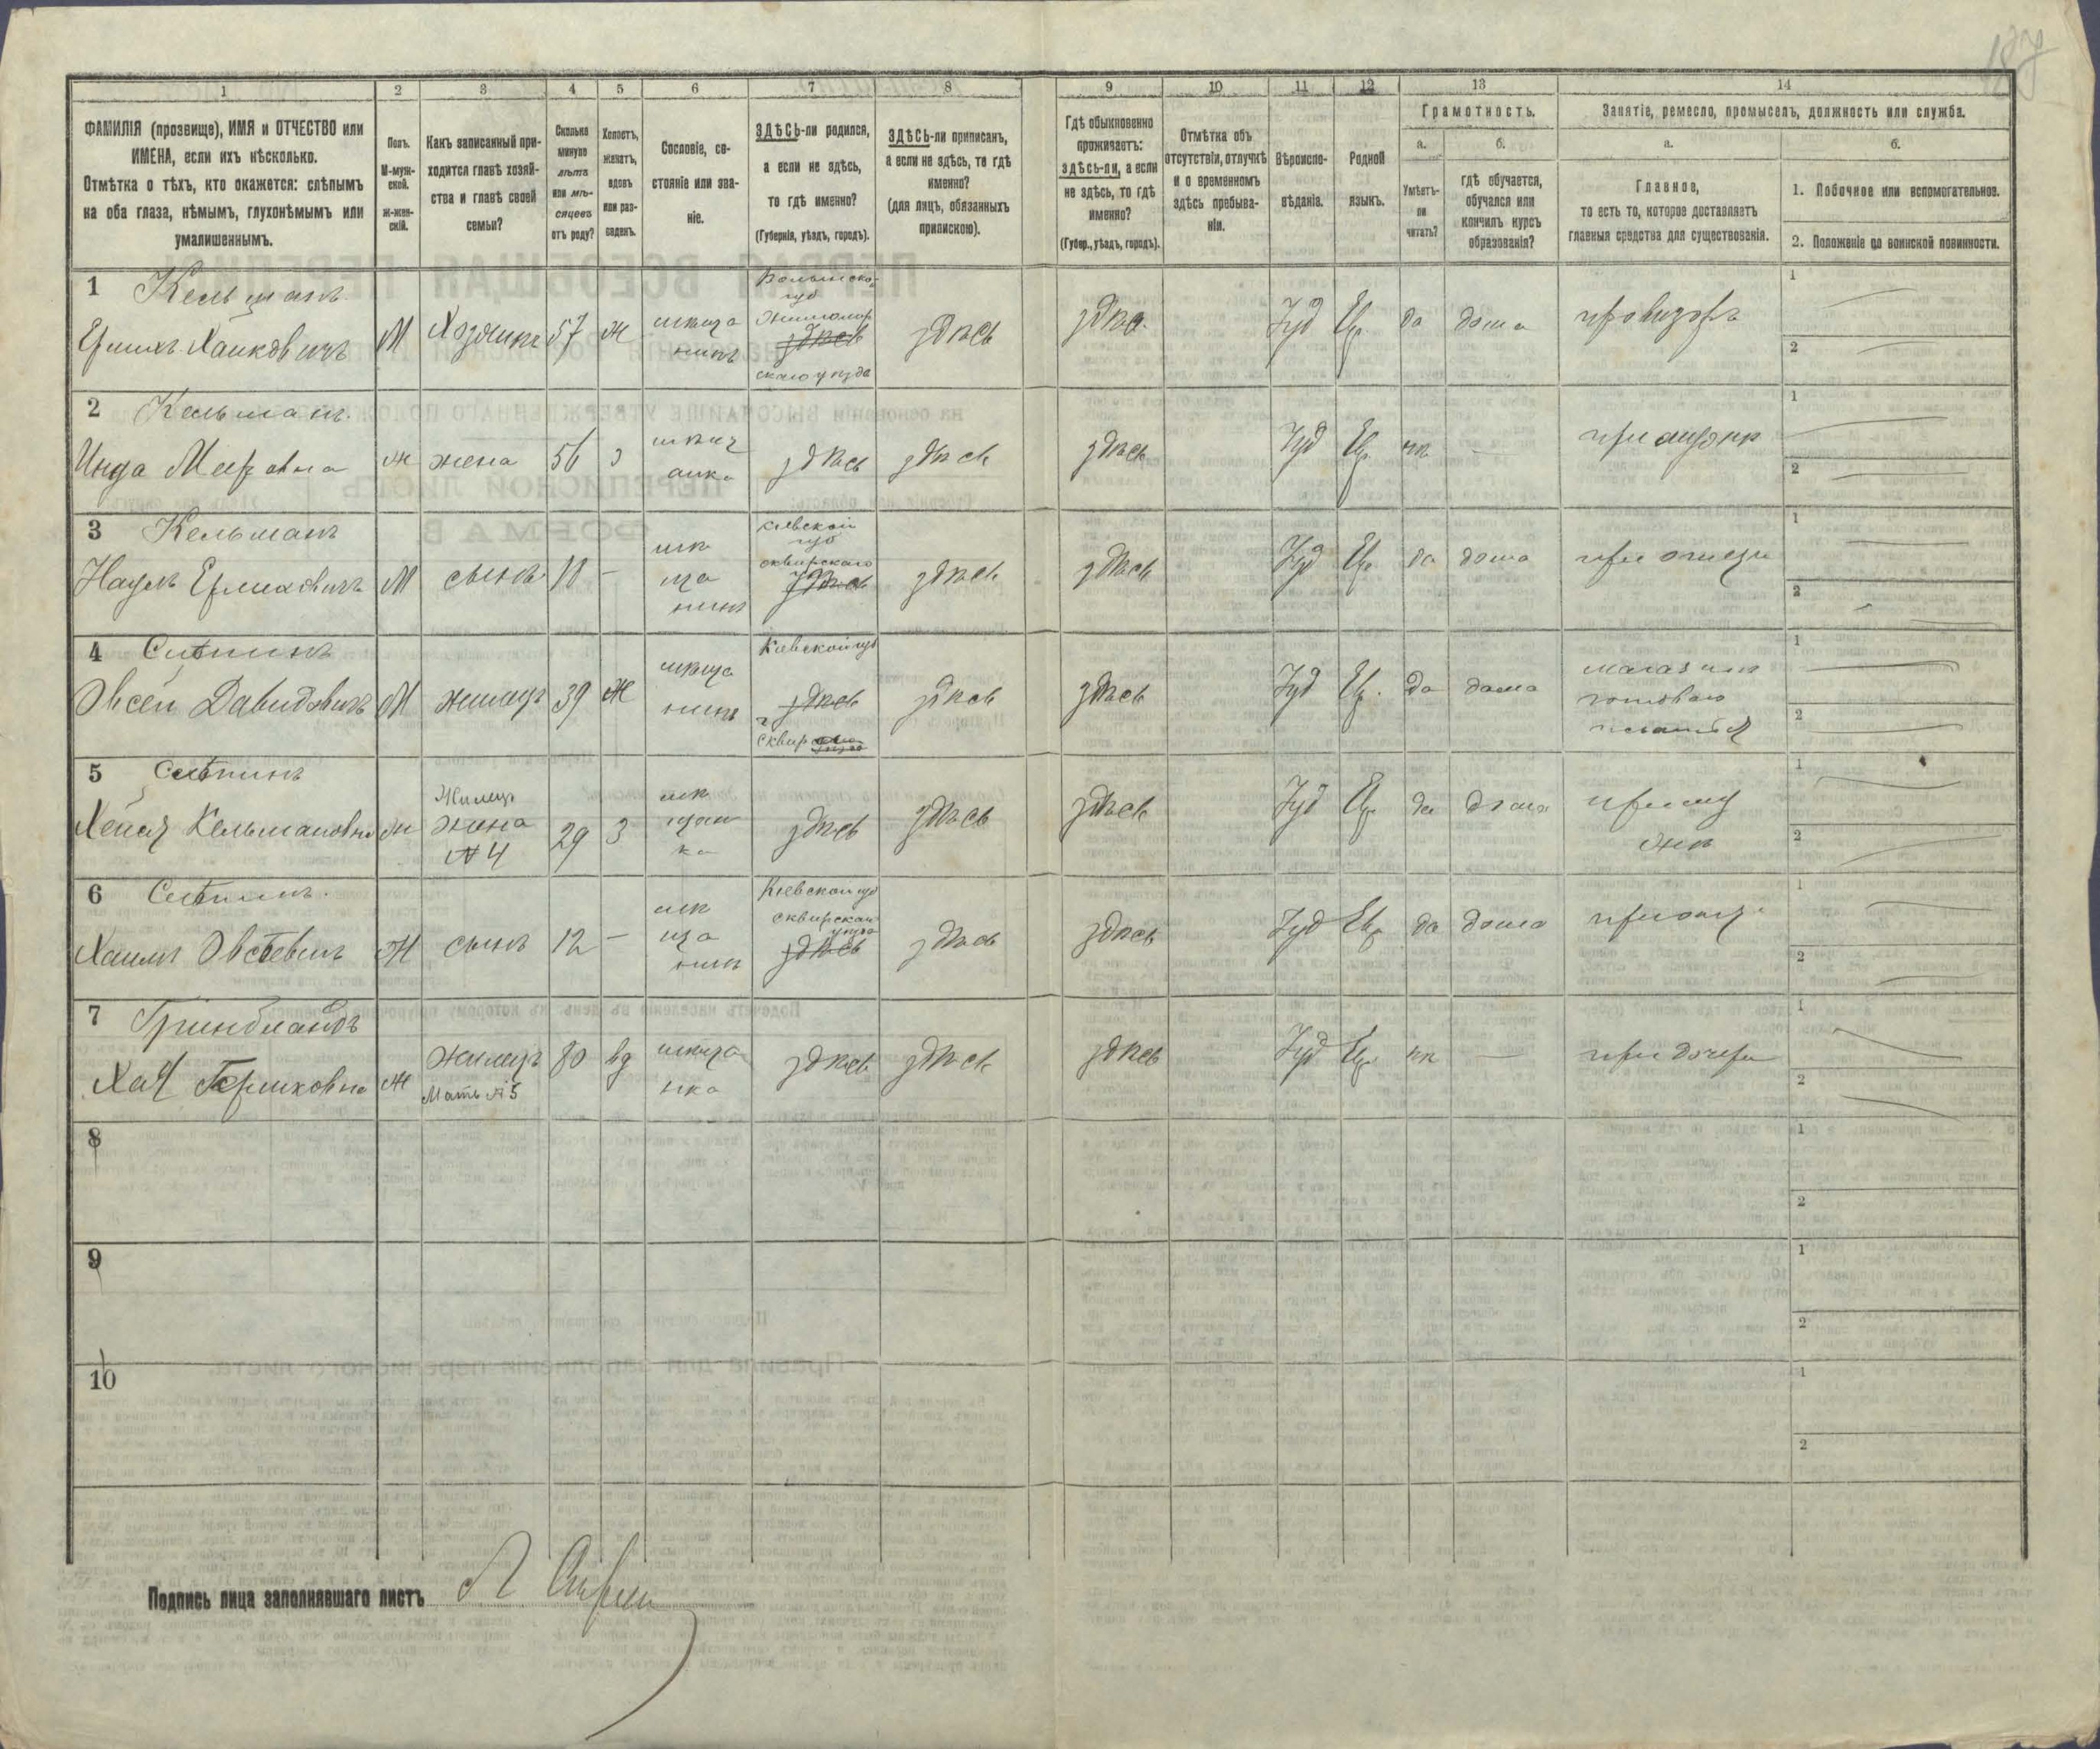 187
1 2 3 4 5 6 7 8 9 10 11 12 13 14
ФАМИЛІЯ (прозвище), ИМЯ и ОТЧЕСТВО или
ИМЕНА, если ихъ нѣсколько.
Отмѣтка о тѣхъ, кто окажется: слѣпымъ
на оба глаза, нѣмымъ, глухонѣмымъ или
умалишеннымъ.
Полъ.
М-муж-
ской.
Ж-жен-
скій.
Какъ записанный при-
ходится главѣ хозяй-
ства и главѣ своей
семьи?
Сколько
минуло
лѣтъ
или мѣ-
сяцевъ
отъ роду?
Холостъ,
женатъ,
вдовъ
или раз-
веденъ.
Сословіе, со-
стояніе или зва-
ніе.
ЗДѢСЬ-ли родился,
а если не здѣсь,
то гдѣ именно?
(Губернія, уѣздъ, городъ).
ЗДѢСЬ-ли приписанъ,
а если не здѣсь, то гдѣ
именно?
(для лицъ, обязанныхъ
припискою).
Гдѣ обыкновенно
проживаетъ:
здѣсь-ли, а если
не здѣсь, то гдѣ
именно?
(Губер., уѣздъ, городъ).
Отмѣтка объ
отсутствіи, отлучкѣ
и о временномъ
здѣсь пребыва-
ніи.
Вѣроиспо-
вѣданіе.
Родной
языкъ.
Грамотность.
а.
Умѣетъ-
ли
читать?
б.
гдѣ обучается,
обучался или
кончилъ курсъ
образованія?
Занятіе, ремесло, промыселъ, должность или служба.
а.
Главное,
то есть то, которое доставляетъ
главныя средства для существованія.
б.
1. Побочное или вспомогательное.
2. Положеніе по воинской повинности.
1 Кельманъ
М Хозяинъ 57 ж мѣща
нинъ
Волынской
губ
Житомир
здѣсь
скаго уѣзда
здѣсь здѣсь Іуд Евр да дома провизоръ
1
2
2 Кельманъ
Инда Меировна ж жена 56 з мѣщ
анка здѣсь здѣсь здѣсь Іуд Евр нѣ — при мужѣ
1
2
3 Кельманъ
М сынъ — мѣ
ща
нинъ
кіевской
губ
сквирскаго
здѣсь
здѣсь здѣсь Іуд Евр да дома при отцѣ
1
2
4
Давидовичъ М жилецъ 39 ж мѣща
нинъ
Кіевской губ
здѣсь
г Сквир
здѣсь здѣсь Іуд Евр да дома магазинъ
готоваго
платья
1
2
5
Кельмановна ж
Жилец
жена
№ 4
29 з мѣ
щан
ка
здѣсь здѣсь здѣсь Іуд Евр да дома при му
жѣ
1
2
6
Хаимъ сынъ 12 — мѣ
ща
нинъ
Кіевской губ
сквирскаго
здѣсь
здѣсь здѣсь Іуд Евр да дома при отцѣ
1
2
7 Гринблатъ
Хая ж
жилецъ
Мать № 5
80 вд мѣща
нка
здѣсь здѣсь здѣсь Іуд Евр нѣ — при дочери
1
2
8
1
2
9
1
2
10
1
2
Подпись лица заполнявшаго листъ